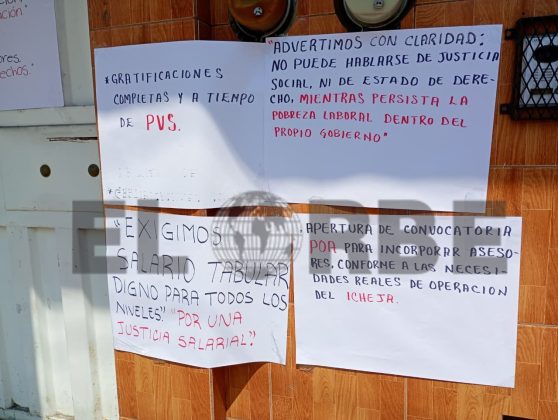 ación"
ores.
echos."
*GRATIFICACIONES
COMPLETAS Y A TIEMPO
DE PVS.
"ADVERTIMOS CON CLARIDAD:
NO PUEDE HABLARSE DE JUSTICIA
SOCIAL, NI DE ESTADO DE DERE-
CHO, MIENTRAS PERSISTA LA
POBREZA LABORAL DENTRO DEL
PROPIO GOBIERNO"
"EXIGIMOS
SALARIO TABULAR
DIGNO PARA TODOS LOS
NIVELES". "POR UNA
JUSTICIA SALARIAL".
• APERTURA DE CONVOCATORIA
POA PARA INCORPORAR ASESO-
RES, CONFORME A LAS NECESI-
DADES REALES DE OPERACION
DEL ICHEJA.
EL ORBE